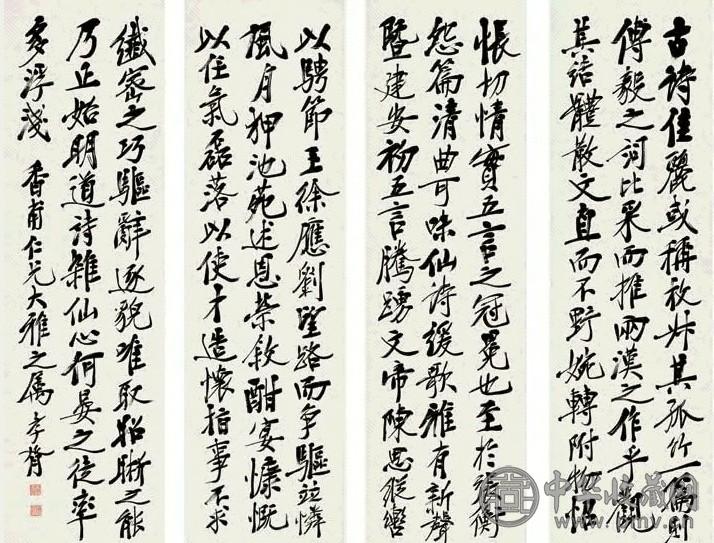 古詩佳麗或稱枚叔其孤竹一篇則
傅毅之詞比采而推兩漢之作乎觀
其結體散文直而不野婉轉附物怊
悵切情實五言之冠冕也至於張衡
怨篇清曲可味仙詩緩歌雅有新聲
暨建安初五言騰踴文帝陳思縱轡
以騁節王徐應劉望路而爭驅並憐
風月狎池苑述恩榮敘酣宴慷慨
以任氣磊落以使才造懷指事不求
纖密之巧驅辭逐貌唯取昭晰之能
乃正始明道詩雜仙心何晏之徒率
多浮淺 香甫仁兄大雅之屬 李
中华收藏网